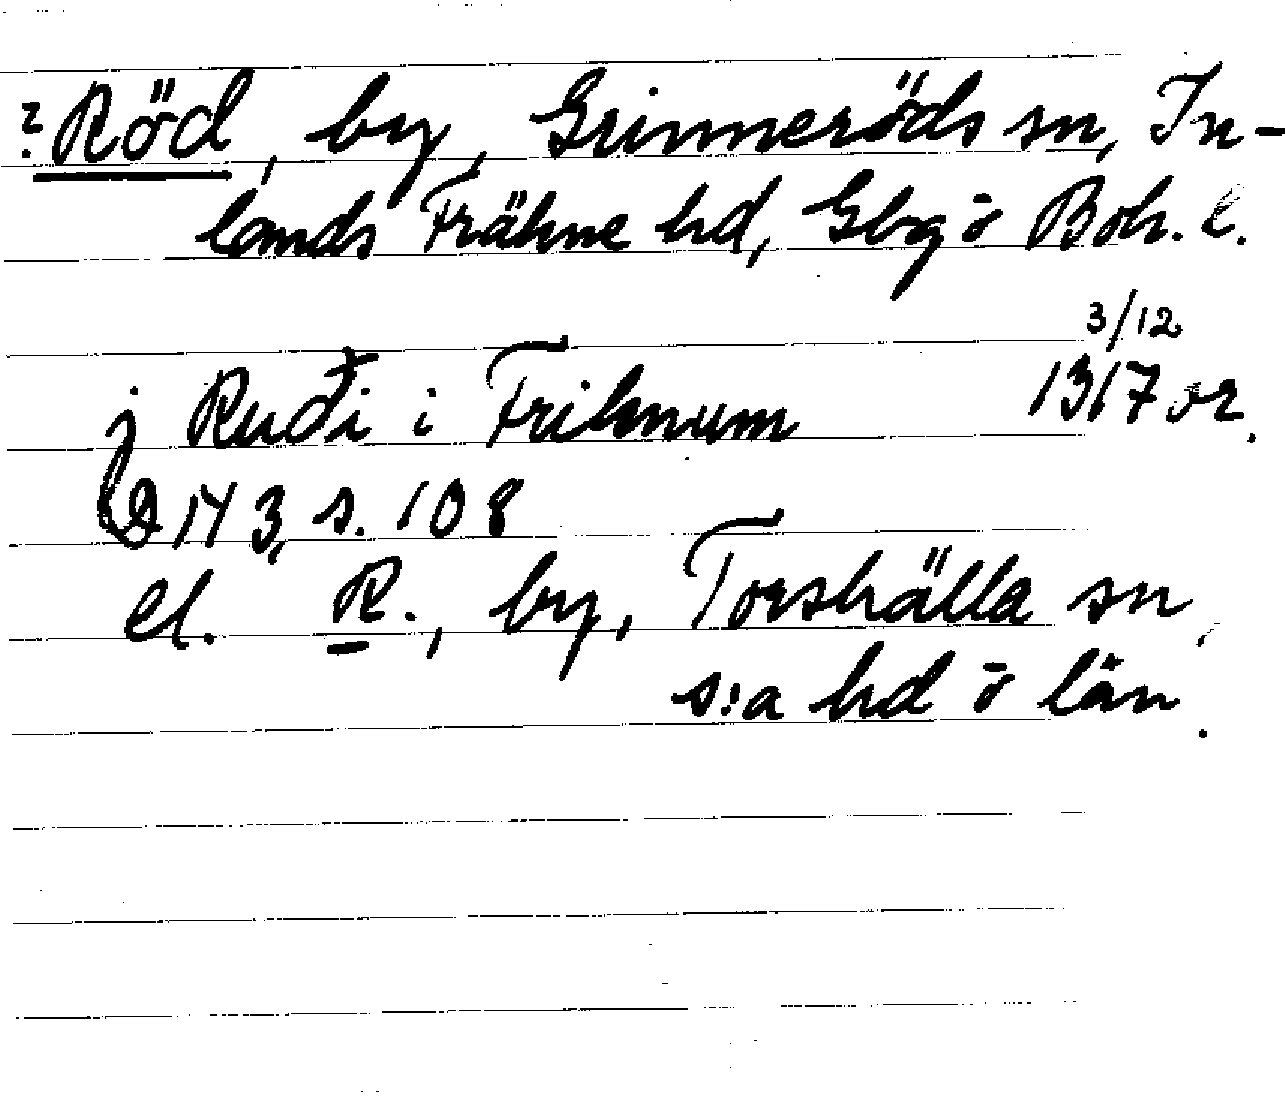 ?Röd, by, Grinneröds sn, In-
lands Fräkne hd, Gbg o Boh. l.
3/12
j Ruði i Friknum 1317 or.
DN 3, s. 108
el. R., by, Torshälla sn,
s:a hd o län.